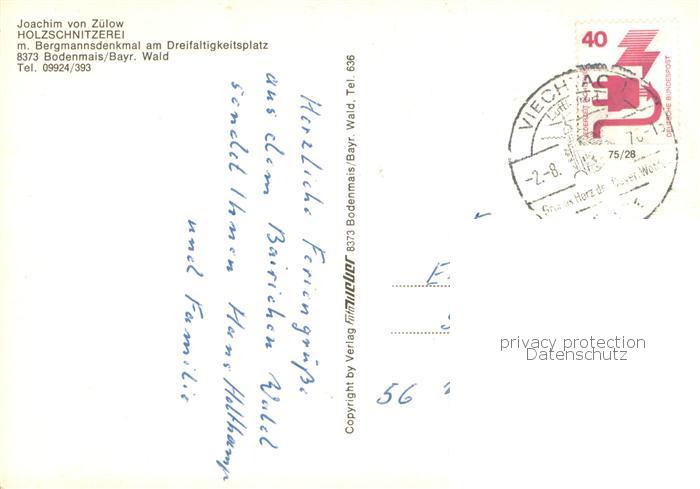 Joachim von Zülow
HOLZSCHNITZEREI
m. Bergmannsdenkmal am Dreifaltigkeitsplatz
8373 Bodenmais/Bayr. Wald
Tel. 09924/393
Herzliche Feriengrüße
aus dem Bairischen Wald
sendet Ihnen Hans Holtkamp
und Familie
Copyright by Verlag Foto Weber 8373 Bodenmais/Bayr. Wald, Tel. 636
40
DEUTSCHE BUNDESPOST
VIECHTACH
75/28
-2.-8.
56
privacy protection
Datenschutz